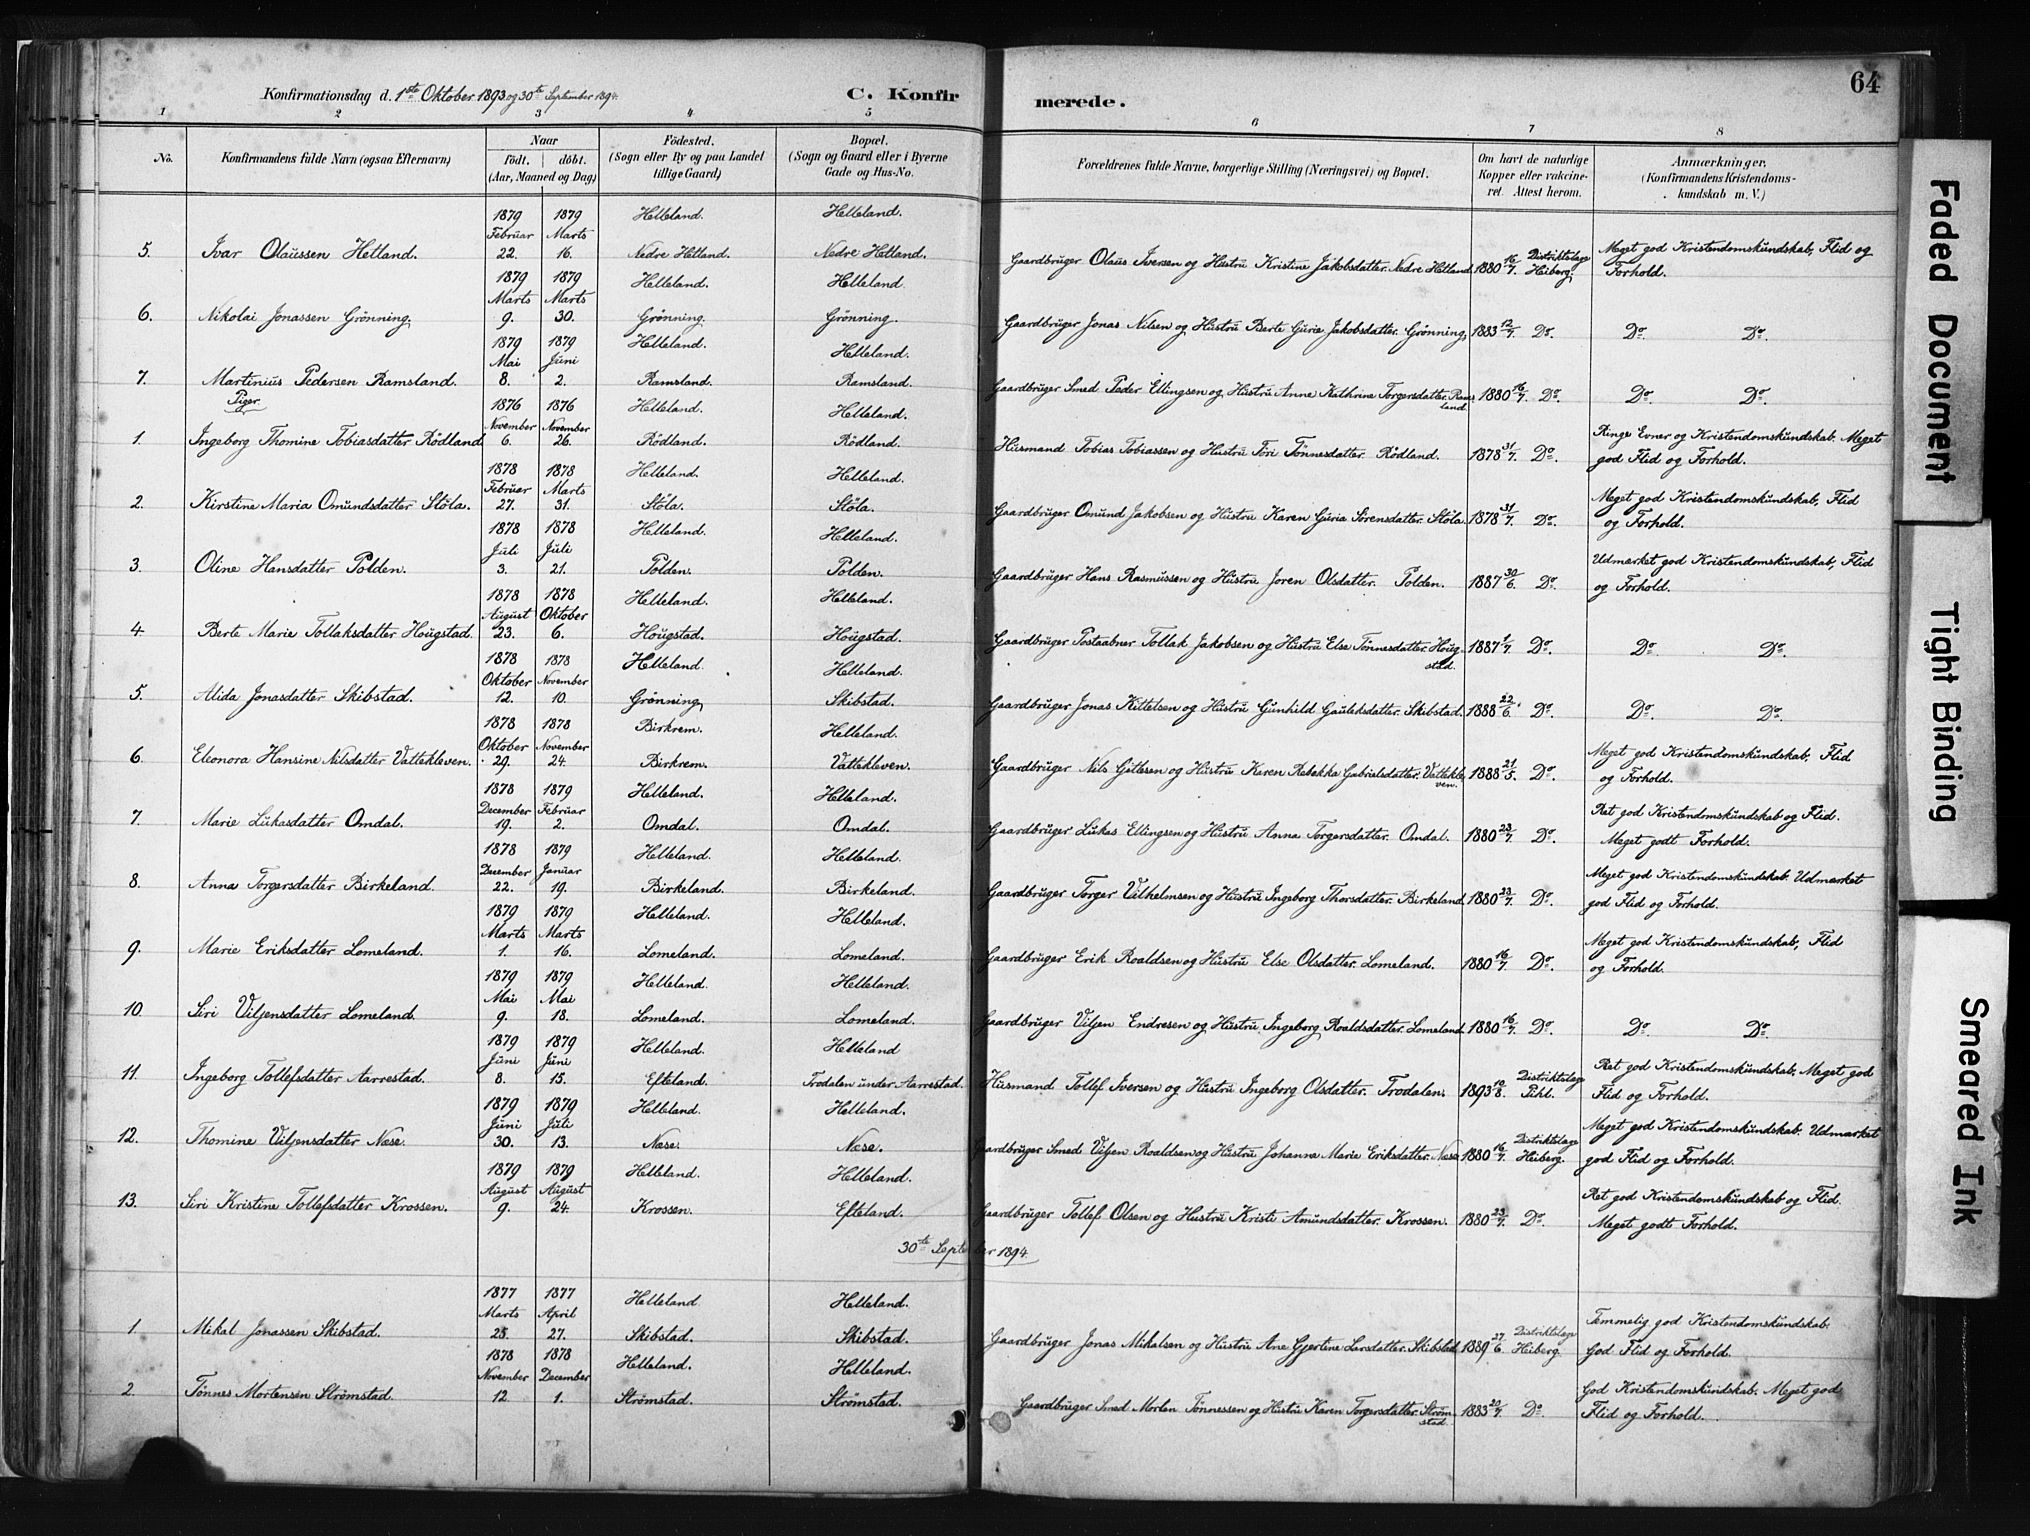 64
Konfirmationsdag d. 1ste Oktober 1893 og 30te September 1894.
C. Konfirmerede.
1 2 3 4 5 6 7 8
No.
Konfirmandens fulde Navn (ogsaa Efternavn)
Naar
födt. döbt.
(Aar, Maaned og Dag)
Födested.
(Sogn eller By og paa Landet
tillige Gaard)
Bopæl.
(Sogn og Gaard eller i Byerne
Gade og Hus-No.
Forældrenes fulde Navne, borgerlige Stilling (Næringsvei) og Bopæl.
Om havt de naturlige
Kopper eller vakcine-
ret. Attest herom.
Anmærkninger.
(Konfirmandens Kristendoms-
kundskab m. V.)
1879 1879 Helleland. Helleland.
Februar Marts
5. Ivar Olaussen Hetland. 22. 16. Nedre Hetland. Nedre Hetland. Gaardbruger Olaus Iversen og Hustru Kristine Jakobsdatter. Nedre Hetland. 1880 16/7. Distriktslæge Heiberg. Meget god Kristendomskundskab, Flid og
Forhold.
1879 1879 Helleland. Helleland.
Marts Marts
6. Nikolai Jonassen Grønning. 9. 30. Grønning. Grønning. Gaardbruger Jonas Nilsen og Hustru Berte Gurie Jakobsdatter. Grønning. 1883 12/7. Do. Do. Do.
1879 1879 Helleland. Helleland.
Mai Juni
7. Martinius Pedersen Ramsland. 8. 2. Ramsland. Ramsland. Gaardbruger Smed Peder Ellingsen og Hustru Anne Kathrine Torgersdatter. Ramsland. 1880 16/7. Do. Do. Do.
Piger.
1876 1876 Helleland. Helleland.
November November
1. Ingeborg Thomine Tobiasdatter Rødland. 6. 26. Rødland. Rødland. Husmand Tobias Tobiassen og Hustru Tori Tønnesdatter. Rødland. 1878 31/7. Do. Ringe Evner og Kristendomskundskab. Meget
god Flid og Forhold.
1878 1878 Helleland. Helleland.
Februar Marts
2. Kirstine Maria Omundsdatter Støla. 27. 31. Støla. Støla. Gaardbruger Omund Jakobsen og Hustru Karen Guria Sørensdatter. Støla. 1878 31/7. Do. Meget god Kristendomskundskab, Flid
og Forhold.
1878 1878 Helleland. Helleland.
Juli Juli
3. Oline Hansdatter Polden. 3. 21. Polden. Polden. Gaardbruger Hans Rasmussen og Hustru Joren Olsdatter. Polden. 1887 30/6. Do. Udmærket god Kristendomskundskab, Flid
og Forhold.
1878 1878 Helleland. Helleland.
August Oktober
4 Berte Marie Tollaksdatter Hougstad. 23. 6. Hougstad. Hougstad. Gaardbruger Postaabner Tollak Jakobsen og Hustru Else Tønnesdatter. Hougstad. 1887 1/7. Do. Do. Do.
1878 1878 Helleland. Helleland.
Oktober November
5. Alida Jonasdatter Skibstad. 12. 10. Grønning. Skibstad. Gaardbruger Jonas Kittelsen og Hustru Gunhild Gauleksdatter. Skibstad. 1888 22/6. Do. Do. Do.
1878 1878 Birkrem. Helleland.
Oktober November
6. Eleonora Hansine Nilsdatter Vattekleven. 29. 24. Birkrem. Vattekleven. Gaardbruger Nils Gitlesen og Hustru Karen Rebekka Gabrielsdatter. Vattekleven. 1888 21/5. Do. Meget god Kristendomskundskab, Flid
og Forhold.
1878 1879 Helleland. Helleland.
December Februar
7. Marie Lukasdatter Omdal. 19. 2. Omdal. Omdal. Gaardbruger Lukas Ellingsen og Hustru Anna Torgersdatter. Omdal. 1880 23/7. Do. Ret god Kristendomskundskab og Flid.
Meget godt Forhold.
1878 1879 Helleland. Helleland.
December Januar
8. Anna Torgersdatter Birkeland. 22. 19. Birkeland. Birkeland. Gaardbruger Torger Vilhelmsen og Hustru Ingeborg Thorsdatter. Birkeland. 1880 23/7. Do. Meget god Kristendomskundskab. Udmærket
god Flid og Forhold.
1879 1879 Helleland. Helleland.
Marts Marts
9. Marie Eriksdatter Lomeland. 1. 16. Lomeland. Lomeland. Gaardbruger Erik Roaldsen og Hustru Else Olsdatter. Lomeland. 1880 16/7. Do. Meget god Kristendomskundskab, Flid
og Forhold.
1879 1879 Helleland. Helleland.
Mai Mai
10. Siri Viljensdatter Lomeland. 9. 18. Lomeland. Lomeland. Gaardbruger Viljen Endresen og Hustru Ingeborg Roaldsdatter. Lomeland. 1880 16/7. Do. Do. Do.
1879 1879 Helleland. Helleland
Juni Juni
11. Ingeborg Tollefsdatter Aarrestad. 8. 15. Efteland. Trodalen under Aarrestad. Husmand Tollef Iversen og Hustru Ingeborg Olsdatter. Trodalen. 1893 10/8. Distriktslæge Pihl. Ret god Kristendomskundskab. Meget god
Flid og Forhold.
1879 1879 Helleland. Helleland.
Juni Juli
12. Thomine Viljensdatter Næse. 30. 13. Næse. Næse. Gaardbruger Smed Viljen Roaldsen og Hustru Johanne Marie Eriksdatter. Næse. 1880 16/7. Distriktslæge Heiberg. Meget god Kristendomskundskab. Udmærket
god Flid og Forhold.
1879 1879 Helleland. Helleland.
August August
13. Siri Kristine Tollefsdatter Krossen. 9. 24. Krossen. Efteland. Gaardbruger Tollef Olsen og Hustru Kristi Amundsdatter. Krossen. 1880 23/7. Do. Ret god Kristendomskundskab og Flid.
Meget godt Forhold.
30te September 1894.
1877 1877 Helleland. Helleland.
Marts April
1. Mikal Jonassen Skibstad. 25. 27. Skibstad. Skibstad. Gaardbruger Jonas Mikalsen og Hustru Ane Gjertine Larsdatter. Skibstad. 1889 27/6. Distriktslæge Heiberg. Temmelig god Kristendomskundskab.
God Flid og Forhold.
1878 1878 Helleland. Helleland.
November December
2. Tønnes Mortensen Strømstad. 12. 1. Strømstad. Strømstad. Gaardbruger Smed Morten Tønnessen og Hustru Karen Torgersdatter. Strømstad. 1883 20/7. Do. God Kristendomskundskab. Meget god
Flid og Forhold.
Faded Document
Tight Binding
Smeared Ink